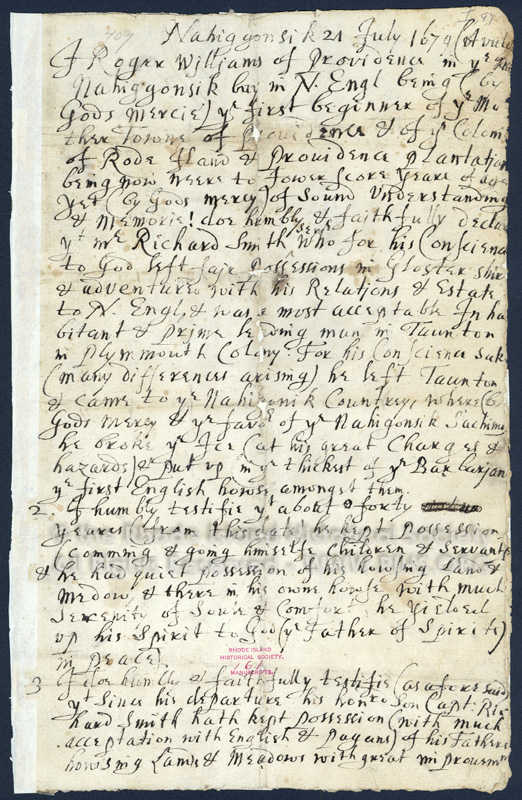 Nahiggonsik 21 July 1679 (ut vulg
I Roger Williams of Providence in ye
Nahiggonsik bay in N. Engl being (by
Gods mercie) ye first beginner of ye Mo
ther Towne of Providence & of ye Colonie
of Rode Iland & Providence Plantations
being now neere to fower score yeare of age
yet (by Gods mercy) of sound understanding
& memorie: doe humbly & faithfully declare
yt mr Richard Smith Senr who for his Conscience
to God left faire Possessions in Gloster shire
& adventured with his Relations & Estate
to N. Engl. & was a most acceptable Inha
bitant & prime leading man in Taunton
in Plymmouth Colony: For his Conscience Sake
(many differences arising) he left Taunton
& came to ye Nahigonsik Countrey, where (by
Gods mercy & ye favor of ye Nahigonsik Sachims
he broke ye Ice (at his great Charges &
hazards) & put up in ye thickest of ye Barbarians
ye first English howse amongst them.
2. I humbly testifie yt about forty
yeares (from this date) he kept Possession
Comming & going himselfe Children & Servants
& he had quiet possession of his howsing Lands &
medow, & there in his owne howse with much
Serenity of Soule & Comfort he yielded
up his Spirit to God (ye Father of Spirits)
in Peace.
RHODE ISLAND
HISTORICAL SOCIETY.
MANUSCRIPTS.
3 I doe humbly & faithfully testifie (as aforesaid)
yt since his departure his honrd Son Capt: Ric
hard Smith hath kept possession (with much
acceptation with English & pagans) of his Fathers
howsing Lands & Meadows with great improvemt